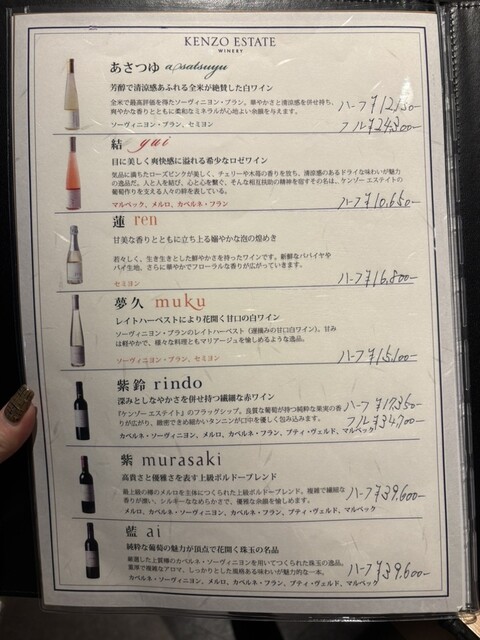 KENZO ESTATE
WINERY
あさつゆ asatsuyu
芳醇で清涼感あふれる全米が絶賛した白ワイン
全米で最高評価を得たソーヴィニヨン・ブラン。華やかさと清涼感を併せ持ち、
爽やかな香りとともに柔和なミネラルが心地よい余韻を与えます。
ハーフ ¥12,150-
ソーヴィニヨン・ブラン、セミヨン
フル ¥24,300-
結 yui
目に美しく爽快感に溢れる希少なロゼワイン
気品に満ちたローズピンクが美しく、チェリーや木苺の香りを放ち、清涼感のあるドライな味わいが魅力
の逸品だ。人と人を結び、心と心を繋ぐ、そんな相互扶助の精神を宿すその名は、ケンゾー エステイトの
葡萄作りを支える人々の絆を表している。
マルベック、メルロ、カベルネ・フラン
ハーフ ¥10,650-
蓮 ren
甘美な香りとともに立ち上る嫋やかな泡の煌めき
若々しく、生き生きとした鮮やかさを持ったワインです。新鮮なパパイヤや
パイ生地、さらに華やかでフローラルな香りが広がっていきます。
セミヨン
ハーフ ¥16,800-
夢久 muku
レイトハーベストにより花開く甘口の白ワイン
ソーヴィニヨン・ブランのレイトハーベスト(遅摘みの甘口白ワイン)、甘み
は軽やかで、様々な料理ともマリアージュを愉しめるような逸品。
ソーヴィニヨン・ブラン、セミヨン
ハーフ ¥15,100-
紫鈴 rindo
深みとしなやかさを併せ持つ繊細な赤ワイン
ハーフ ¥17,350-
『ケンゾー エステイト』のフラッグシップ。良質な葡萄が持つ純粋な果実の香
りが広がり、緻密できめ細かいタンニンが口中を優しく包み込みます。
フル ¥34,700-
カベルネ・ソーヴィニヨン、メルロ、カベルネ・フラン、プティ・ヴェルド、マルベック
紫 murasaki
高貴さと優雅さを表す上級ボルドーブレンド
最上級の樽のメルロを主体につくられた上級ボルドーブレンド。複雑で繊細な
香りが漂い、シルキーななめらかさで、優雅な余韻を愉しめます。
ハーフ ¥39,600-
メルロ、カベルネ・ソーヴィニヨン、カベルネ・フラン、プティ・ヴェルド、マルベック
藍 ai
純粋な葡萄の魅力が頂点で花開く珠玉の名品
厳選した上質樽のカベルネ・ソーヴィニヨンを用いてつくられた珠玉の逸品。
重厚で複雑なアロマ、しっかりとした風格ある味わいが魅力的な一本。
ハーフ ¥39,600-
カベルネ・ソーヴィニヨン、メルロ、カベルネ・フラン、プティ・ヴェルド、マルベック